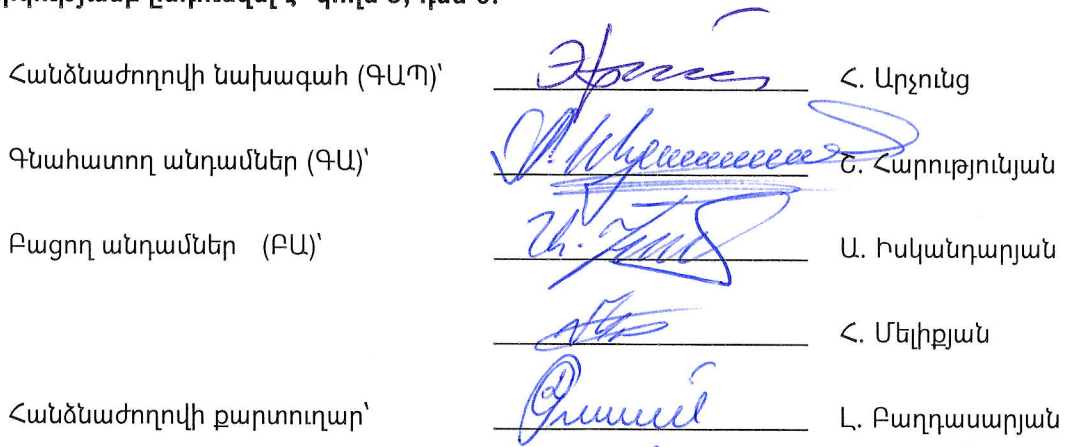 Հանձնաժողովի նախագահ (ԳԱՊ)՝ Հ. Արչունց
Գնահատող անդամներ (ԳԱ)՝ Շ. Հարությունյան
Բացող անդամներ (ԲԱ)՝ Ա. Իսկանդարյան
Հ. Մելիքյան
Հանձնաժողովի քարտուղար՝ Լ. Բաղդասարյան